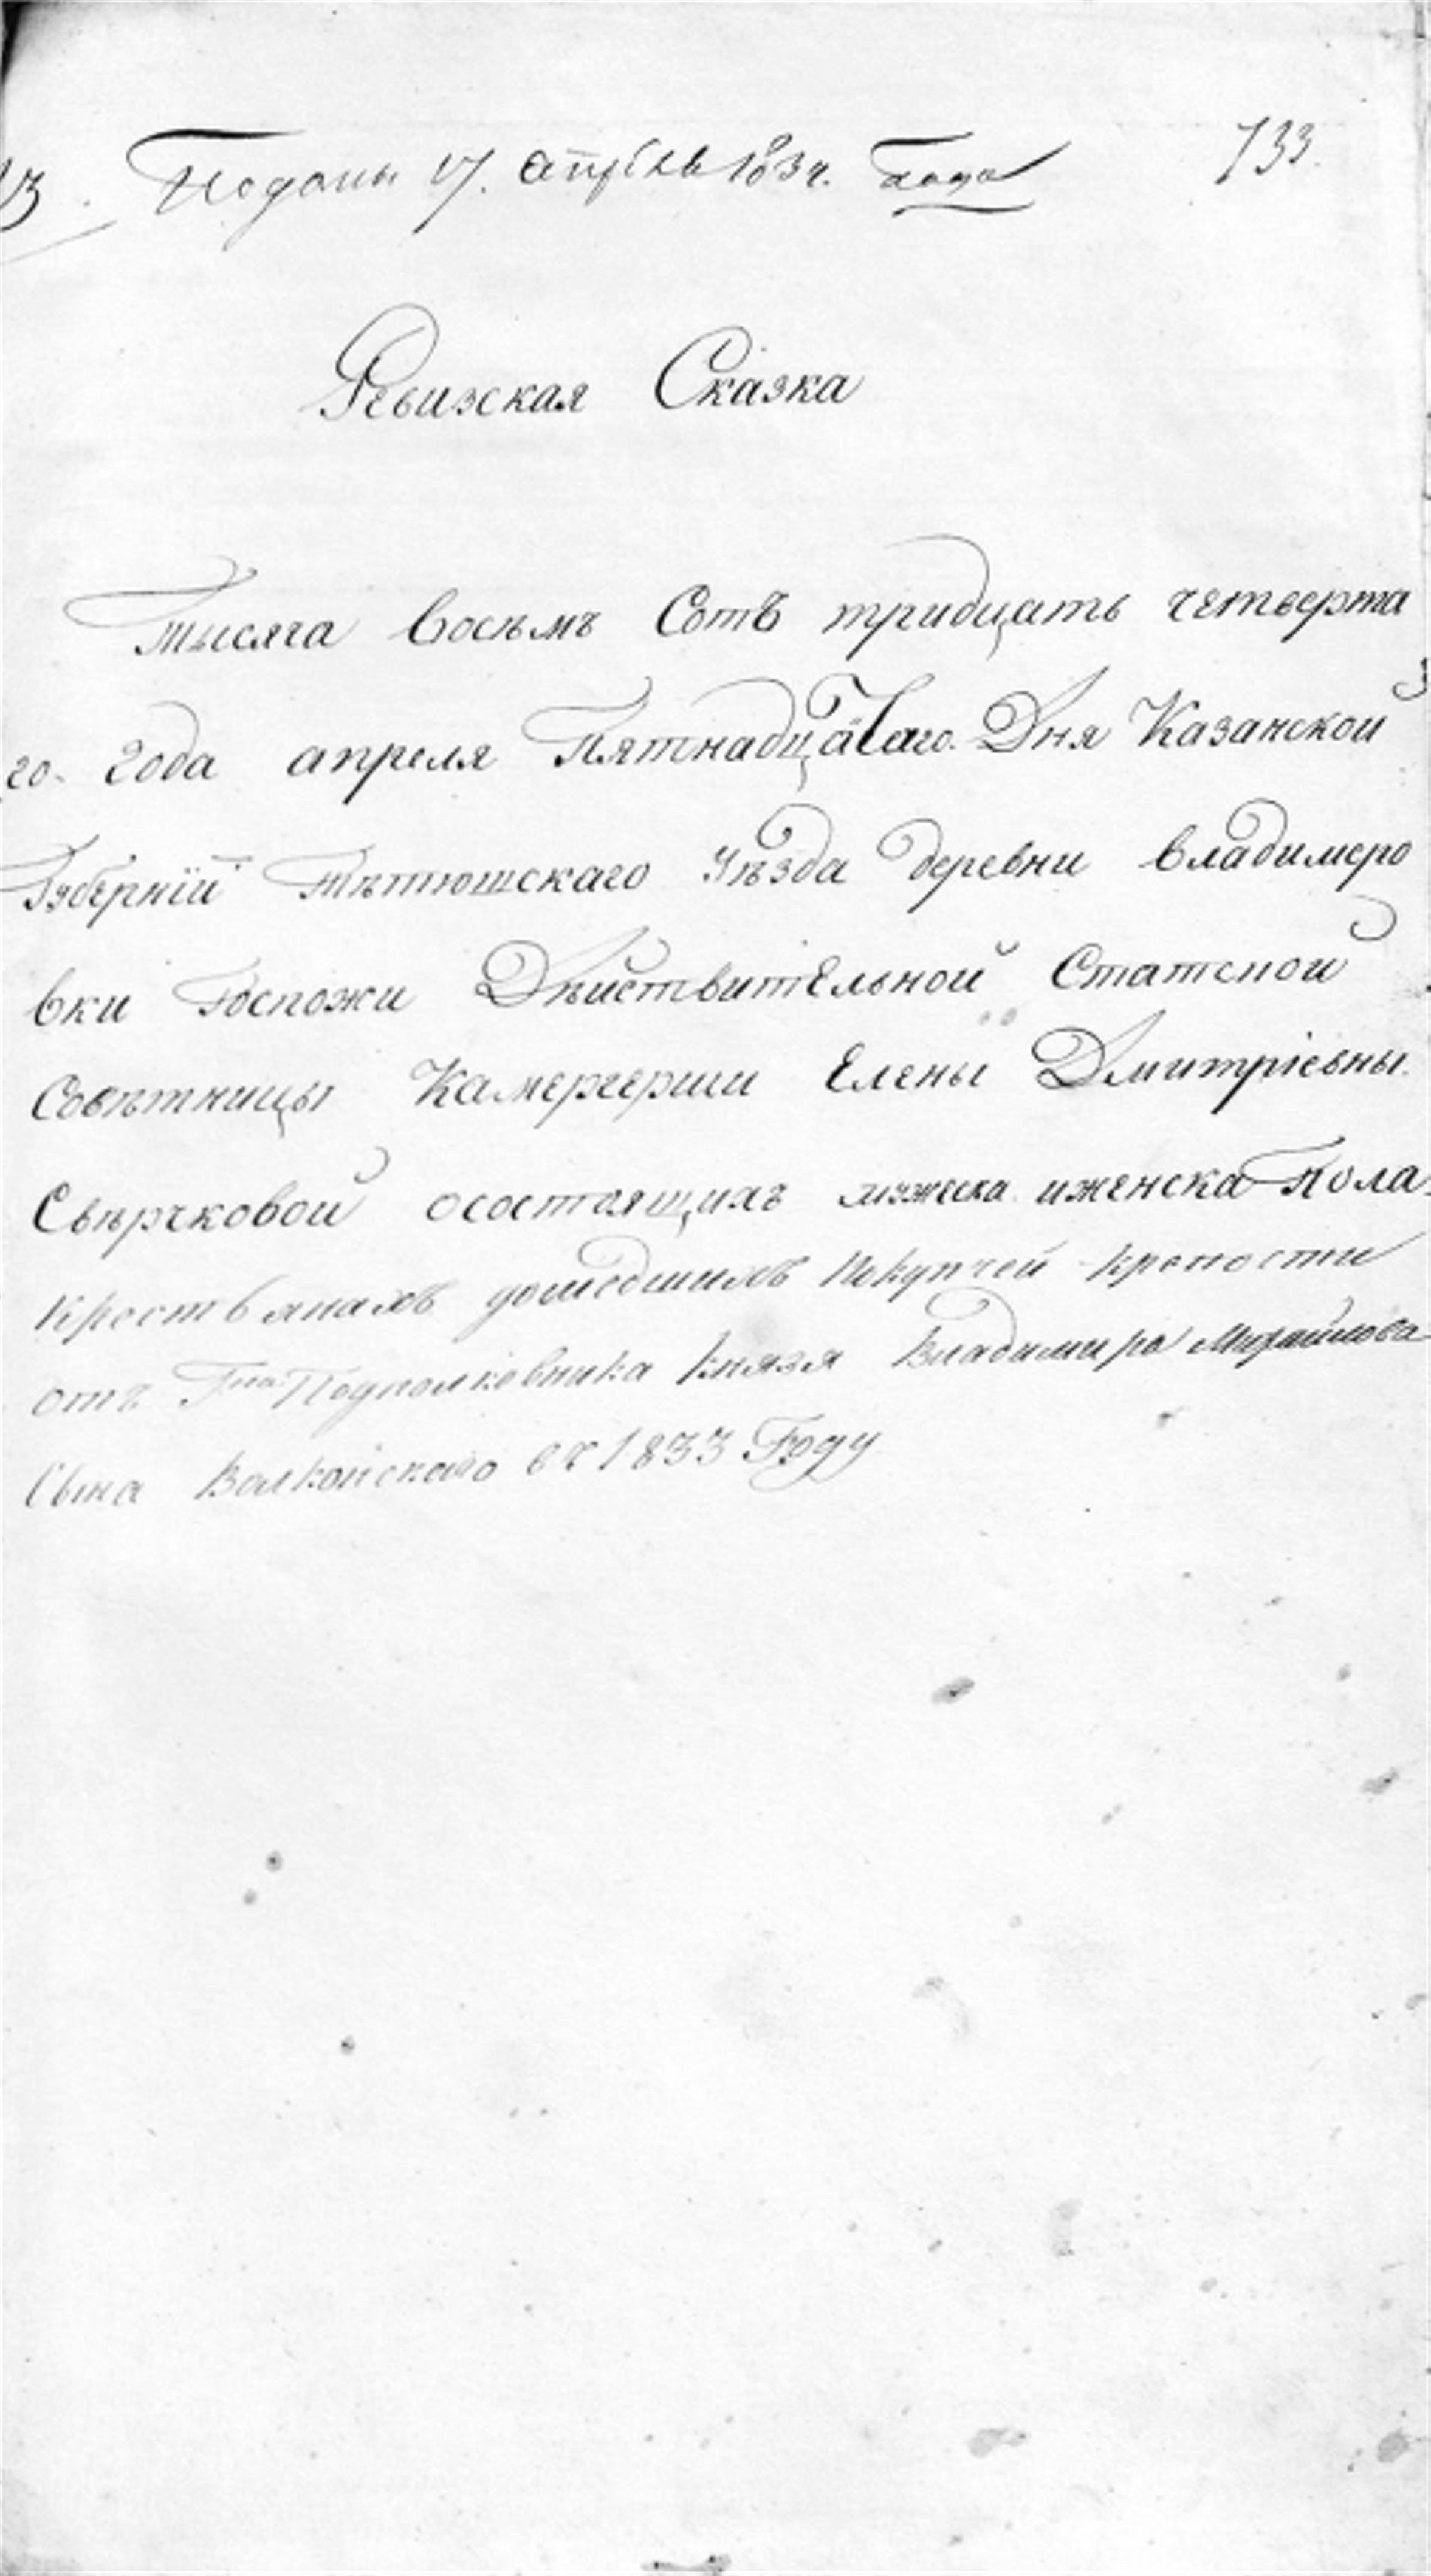 73. Поданы 17. апреля 1834. года 733.
Ревизская Сказка
Тысяча восемъ Сотъ тридцать четверта
го. года апреля Пятнадцатаго. Дня Казанской
Губернїи Тѣтюшскаго Уѣзда деревни владимеро
вки Госпожи Дѣйствительной Статской
Совѣтницы Камергерши Елены Дмитрїевны.
Свѣрчковой осостоящихъ мужеска иженска Пола.
Крестьянахъ дошедшихъ покупчей крепости
отъ Гна Подполковника князя Владимира Михайлова
Сына Волконскаго въ 1833 Году